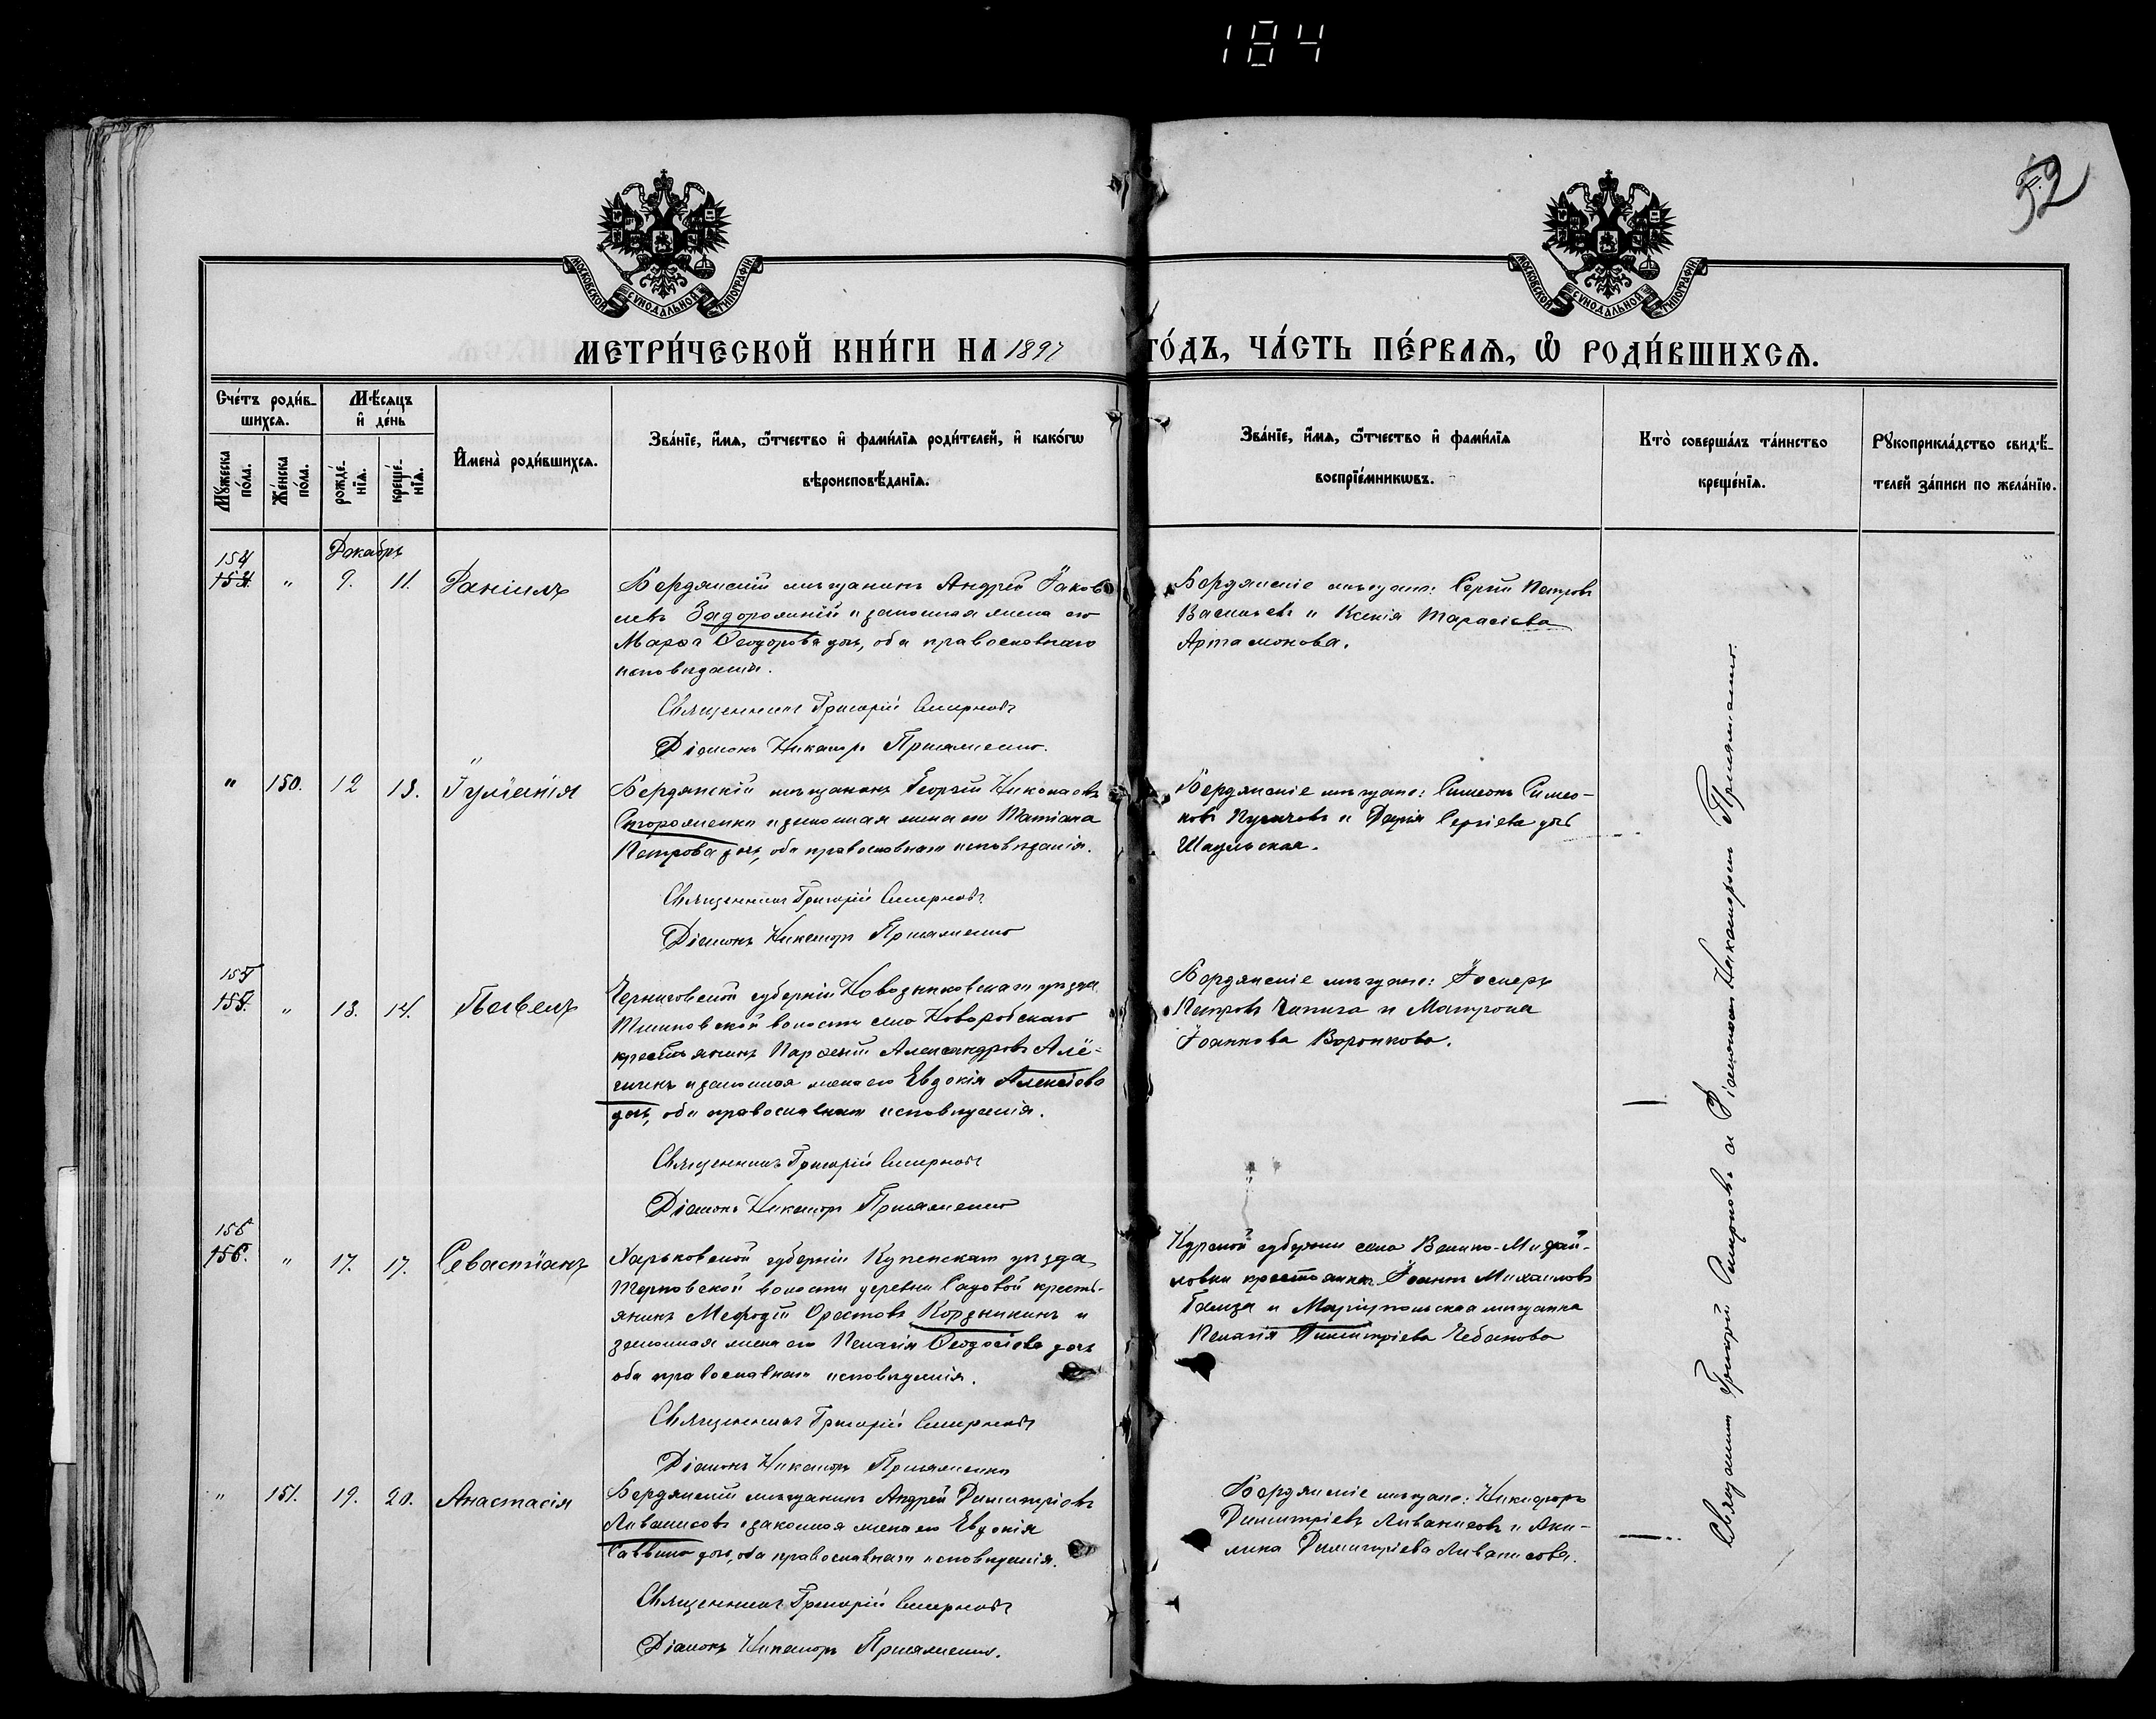 184
52
МОСКОВСКОЙ СѴНОДАЛЬНОЙ ТИПОГРАФІИ
МОСКОВСКОЙ СѴНОДАЛЬНОЙ ТИПОГРАФІИ
МЕТРИ́ЧЕСКОЙ КНИ́ГИ НА 1897 ГО́ДЪ, ЧА́СТЬ ПЕ́РВАЯ, Ѽ РОДИ́ВШИХСѦ.
Сче́тъ роди́в-
шихсѧ.
Мꙋ́жеска по́ла.
Же́нска по́ла.
Мѣ́сяцъ
и҆ де́нь
рожде́-
нїѧ.
креще́-
нїѧ.
И҆мена̀ роди́вшихсѧ.
Зва́нїе, и҆́мѧ, ѻ҆́тчество и҆ фами́лїѧ роди́телей, и҆ како́гѡ
вѣроисповѣ́данїѧ.
Зва́нїе, и҆́мѧ, ѻ҆́тчество и҆ фами́лїѧ
воспрїе́мникѡвъ.
Кто̀ соверша́лъ та́инство
креще́нїѧ.
Рꙋкоприкла́дство свидѣ́-
телей за́писи по жела́нїю.
Декабрь
154
" 9. 11. Даніилъ
Бердянскій мѣщанинъ Андрей Іаков
левъ Задорожній и законная жена его
Марѳа Ѳеодорова дочь, оба православнаго
исповѣданія.
Священникъ Григорій Смирновъ
Діаконъ Никаноръ Пригаменно.
Бердянскіе мѣщане: Сергій Петровъ
Васильевъ и Ксенія Тарасіева
Артамонова.
" 150. 12 13. Іуліанія
Бердянскій мѣщанинъ Георгій Николаевъ
Стороженко и законная жена его Татіана
Петрова дочь, оба православнаго исповѣданія.
Священникъ Григорій Смирновъ
Діаконъ Никаноръ
Бердянскіе мѣщане: Симеонъ Симео-
новъ и Дарія Сергіева дочь
Шаульская.
155
" 13. 14. Павелъ
Черниговской губерніи Новозыбковскаго уѣзда
волости села
крестьянинъ Парѳеній Александровъ Алё-
и законная жена его Евдокія Алексіева
дочь, оба православнаго исповѣданія.
Священникъ Григорій Смирновъ
Діаконъ Никаноръ
Бердянскіе мѣщане: Іосифъ
Петровъ и Матрона
Іоаннова Воронкова.
156
" 17. 17. Севастіанъ
Харьковской губерніи Купенскаго уѣзда
волости деревни Садовой кресть-
янинъ Меѳодій Орестовъ и
законная жена его Пелагія Ѳеодосіева дочь
оба православнаго исповѣданія.
Священникъ Григорій Смирновъ
Діаконъ Никаноръ
Курской губерніи села Велико-Михай-
ловки крестьянинъ Іоаннъ Михаиловъ
и Маріупольская мѣщанка
Пелагія Димитріева Чебанова
" 151. 19. 20. Анастасія
Бердянскій мѣщанинъ Андрей Димитріевъ
Ливанисовъ и законная жена его Евдокія
Саввина дочь, оба православнаго исповѣданія.
Священникъ Григорій Смирновъ
Діаконъ Никаноръ
Бердянскіе мѣщане: Никифоръ
Димитріевъ Ливанисовъ и Аки-
лина Димитріева Ливанисова.
Священникъ Григорій Смирновъ и Діакономъ Никаноромъ